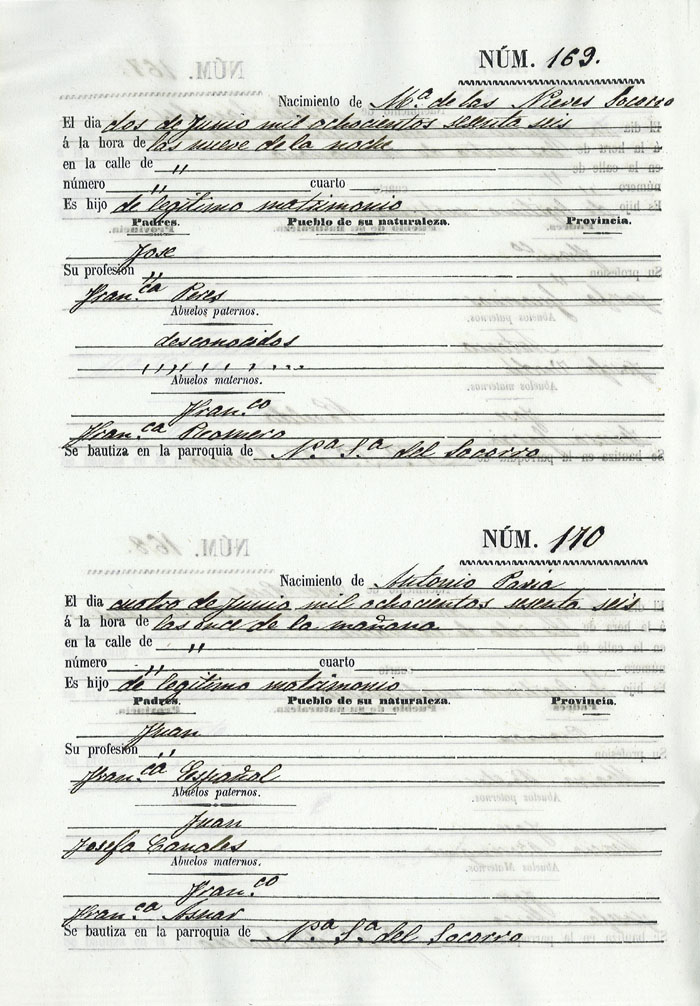 NÚM. 169.
Nacimiento de Mª de las Nieves Socorro
El dia dos de Junio mil ochocientos sesenta seis
á la hora de las nueve de la noche
en la calle de "
número " cuarto
Es hijo de legitimo matrimonio
Padres. Pueblo de su naturaleza. Provincia.
Jose
Su profesión "
Fran.ca Peres
Abuelos paternos.
desconocidos
Abuelos maternos.
Fran.co
Fran.ca Picornero
Se bautiza en la parroquia de Nª Sª del Socorro
NÚM. 170
Nacimiento de Antonio Pavia
El dia cuatro de Junio mil ochocientos sesenta seis
á la hora de las once de la mañana
en la calle de "
número " cuarto
Es hijo de legitimo matrimonio
Padres. Pueblo de su naturaleza. Provincia.
Juan
Su profesión "
Fran.ca Español
Abuelos paternos.
Juan
Josefa Canales
Abuelos maternos.
Fran.co
Fran.ca Asnar
Se bautiza en la parroquia de Nª Sª del Socorro